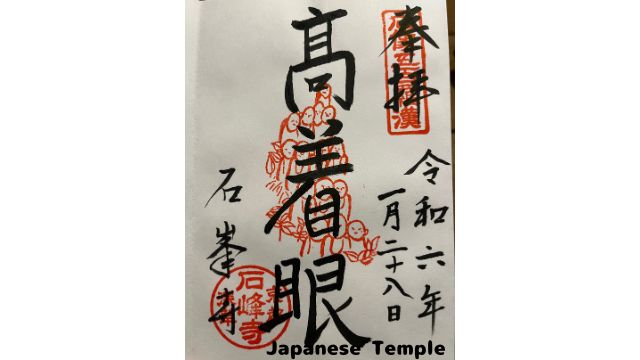 奉拝
令和六年
一月二十八日
高着眼
石峯寺
石峰寺
Japanese Temple